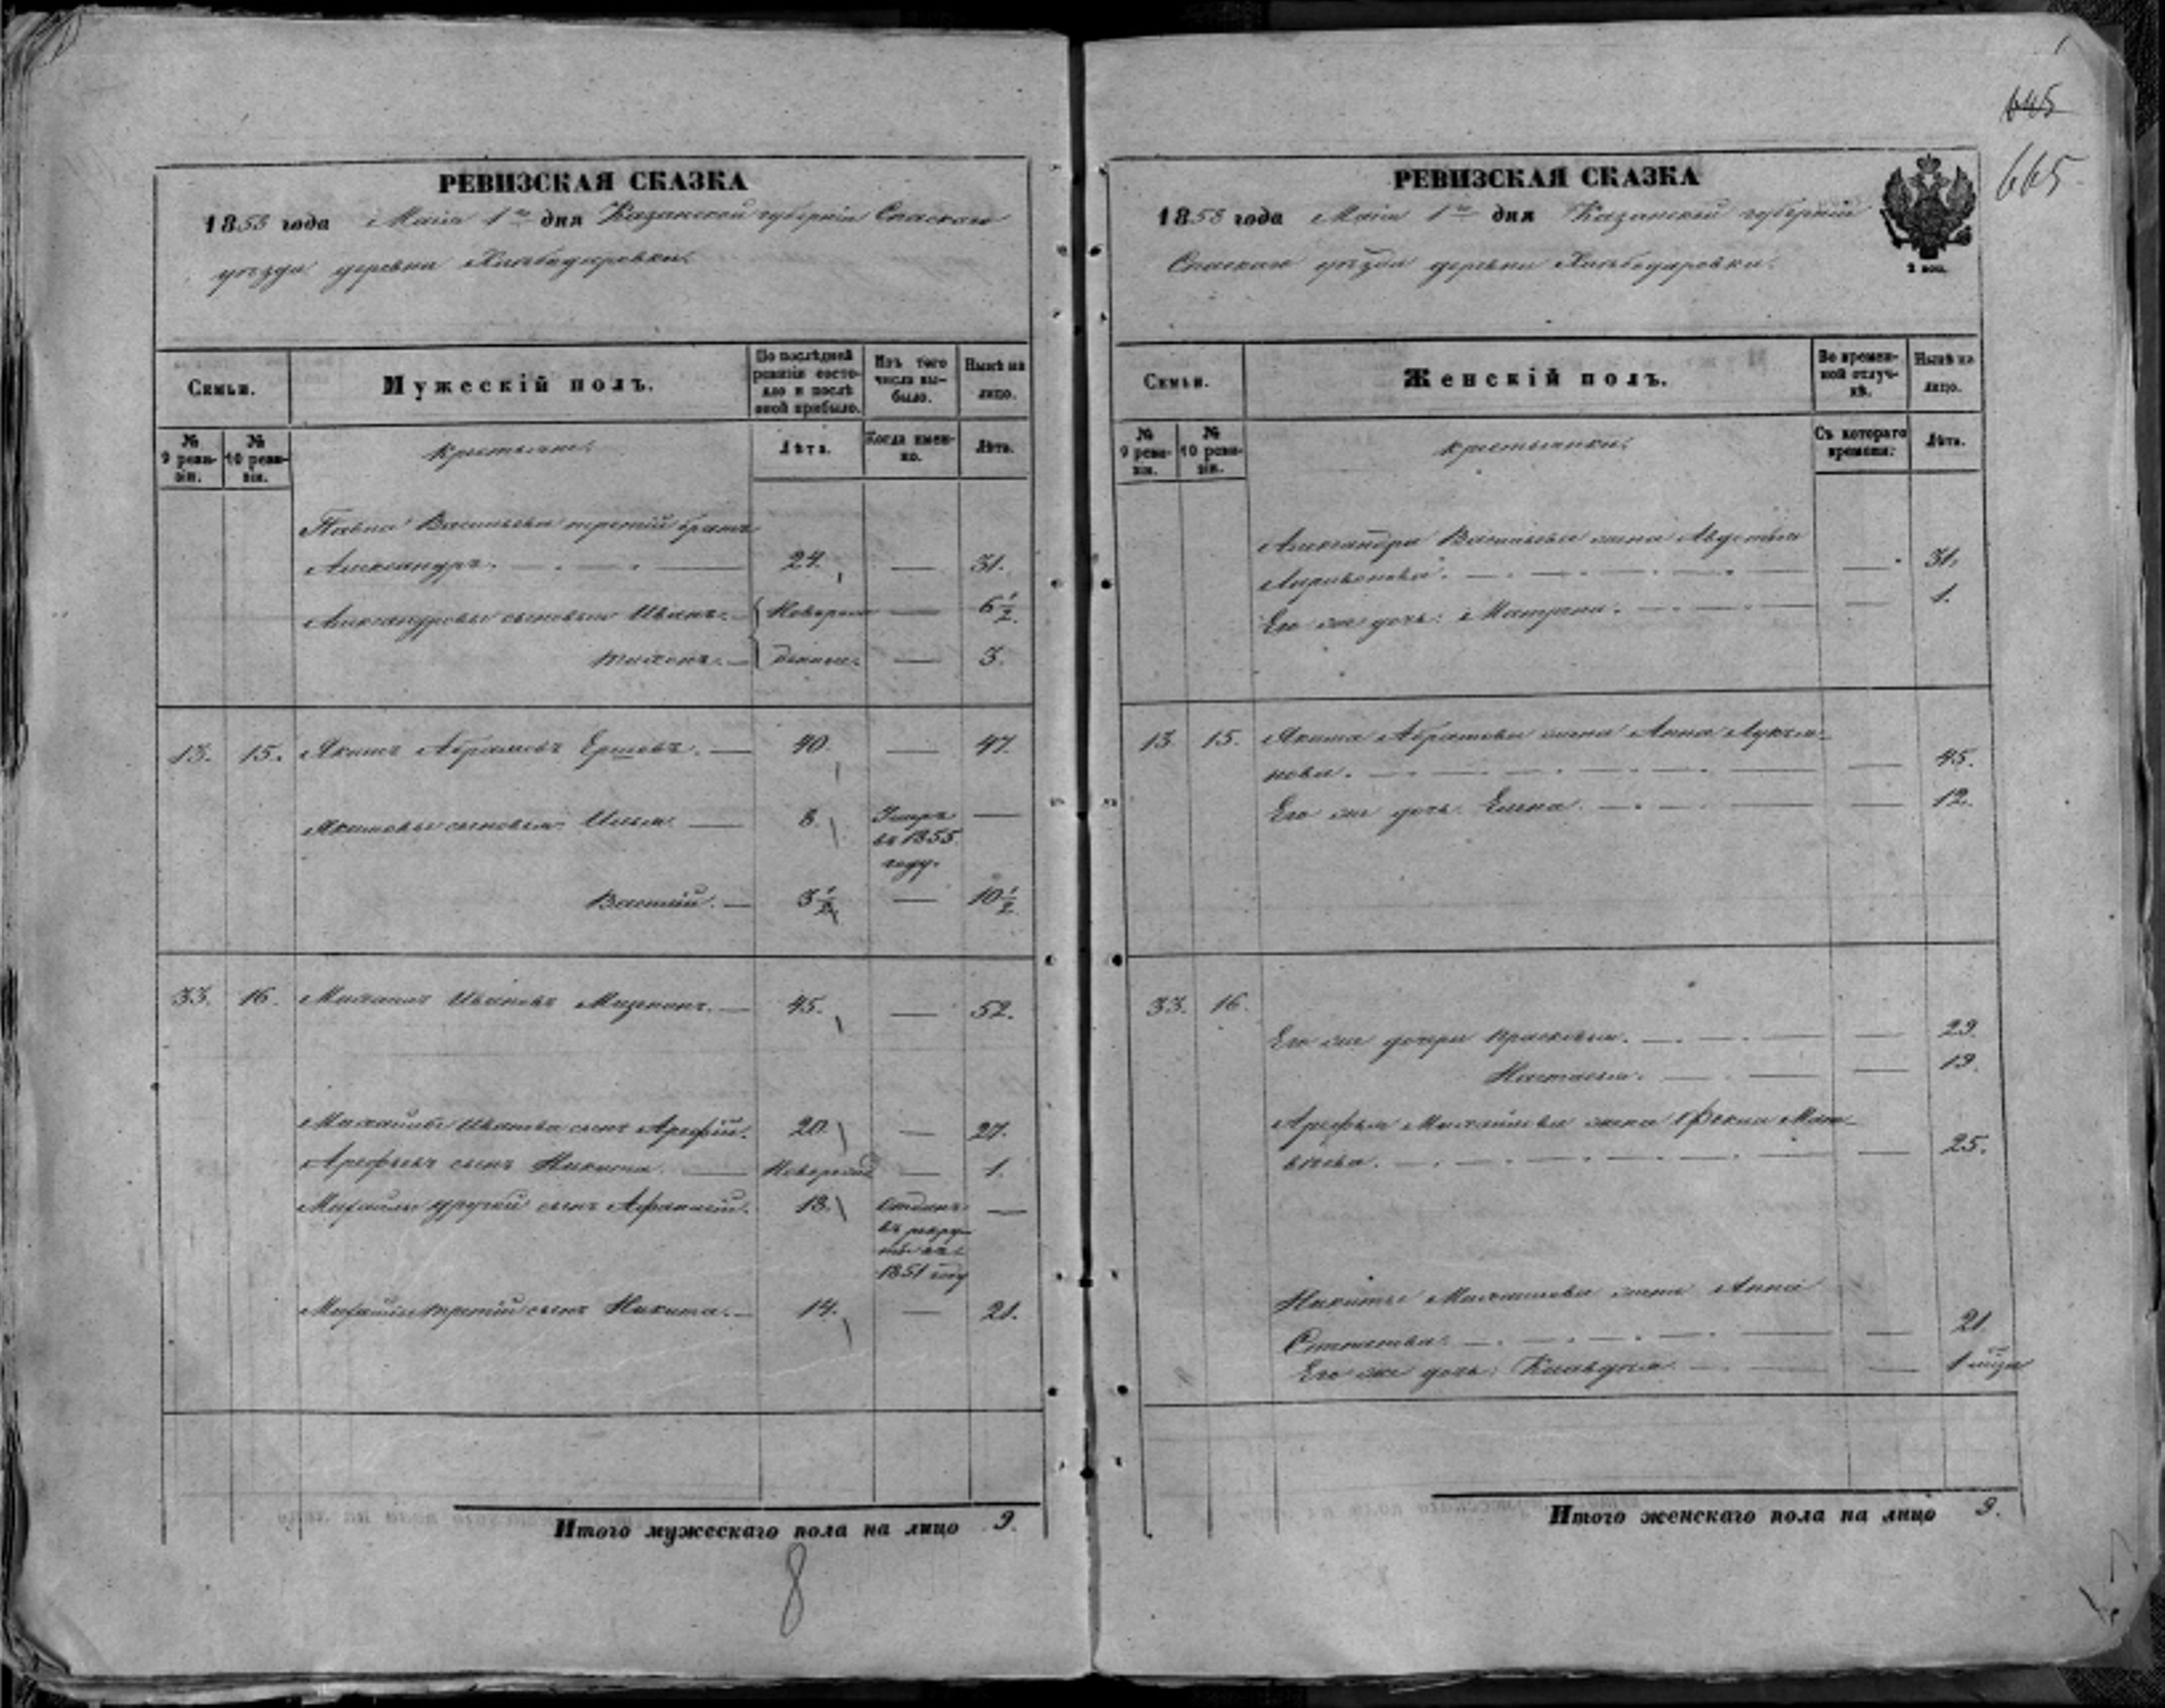 645
665
РЕВИЗСКАЯ СКАЗКА
1858 года Маія 1го дня Казанской губерніи Спаскаго
уѣзда деревни Хлѣбодаровки.
Семьи.
Мужескій полъ.
По послѣдней ревизіи состояло и послѣ оной прибыло.
Изъ того числа выбыло.
Нынѣ на лицо.
№ 9 ревизіи.
№ 10 ревизіи.
крестьяне:
Лѣта.
Когда именно.
Лѣта.
Павла Васильева третій братъ
Александръ. 24. — 31.
Александровы сыновья Иванъ. Новорож — 6 1/2.
Тихонъ. денные. — 3.
13. 15. Якимъ Абрамовъ Ершовъ. 40. — 47.
Якимовы сыновья Илья 8. Умеръ —
въ 1855
году.
Василій. 3 1/2 — 10 1/2
33. 16. Михаилъ Ивановъ Мизининъ. 45. — 52.
Михайлы Иванова сынъ Арефій. 20. — 27.
Арефьевъ сынъ Никита. Новорожд — 1.
Михайлы другой сынъ Афанасій. 18. Отданъ —
въ рекру-
ты въ
1851 году
Михайлы третій сынъ Никита. 14. — 21.
Итого мужескаго пола на лицо 9.
8
РЕВИЗСКАЯ СКАЗКА
1858 года Маія 1го дня Казанской губерніи
Спаскаго уѣзда деревни Хлѣбодаровки.
2 коп.
Семьи.
Женскій полъ.
Во временной отлучкѣ.
Нынѣ на лицо.
№ 9 ревизіи.
№ 10 ревизіи.
крестьянки:
Съ котораго времени.
Лѣта.
Александра Васильева жена Авдотья
Ларивонова. — 31.
Его же дочь: Матрена. — 1.
13. 15. Якима Абрамова жена Анна Лукья-
нова. — 45.
Его же дочь Елена. — 12.
33. 16.
Его же дочери Прасковья. — 29.
Настасья. — 19.
Арефья Михайлова жена Фекла Мат-
вѣева. — 25.
Никиты Михайлова жена Анна
Степанова. — 21.
Его же дочь: Клавдия —
Итого женскаго пола на лицо 9.